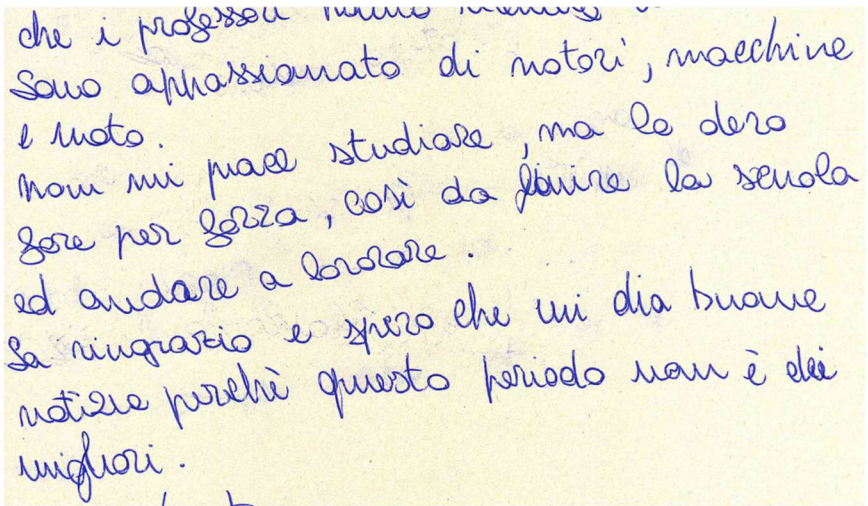 che i professori hanno
Sono appassionato di motori, macchine
e moto.
Non mi piace studiare, ma lo devo
fare per forza, così da finire la scuola
ed andare a lavorare.
La ringrazio e spero che mi dia buone
notizie perchè questo periodo non è dei
migliori.